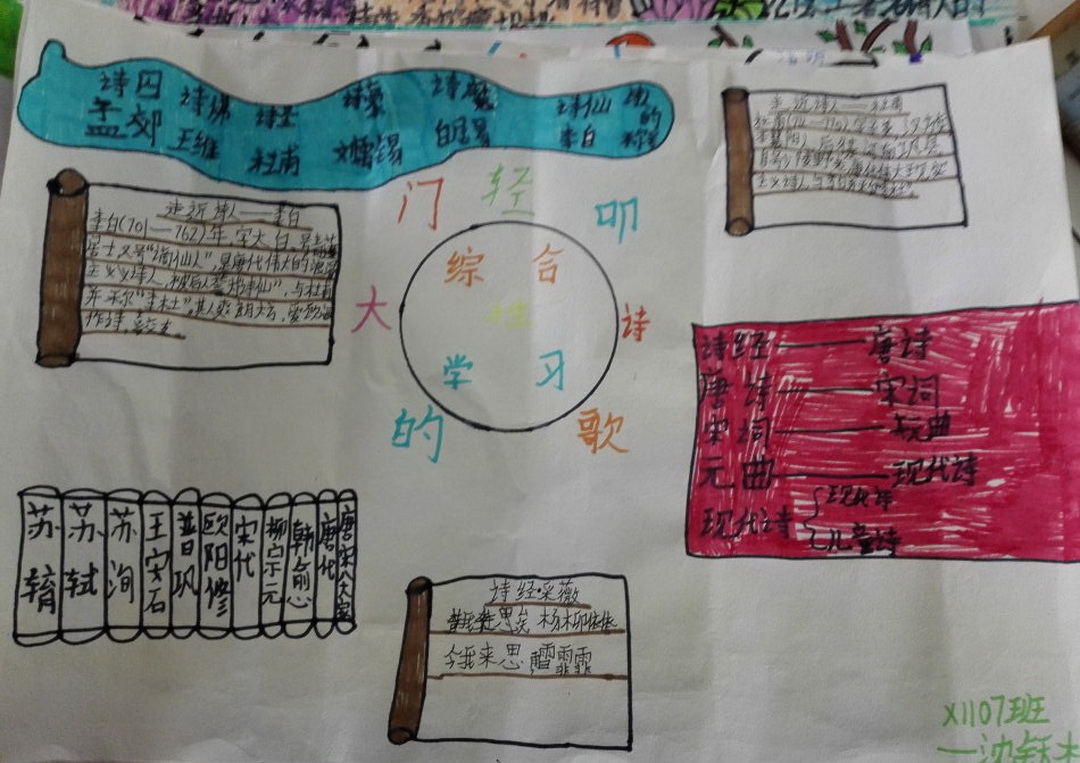 诗的称呼
诗仙 李白
诗魔 白居易
诗豪 刘禹锡
诗圣 杜甫
诗佛 王维
诗囚 孟郊
轻叩诗歌的大门
综合性学习
走近诗人——李白
李白(701—762)年,字大白,号青莲
居士,又号"谪仙人",是唐代伟大的浪漫
主义义诗人,被后人誉为"诗仙",与杜甫
并称"李杜",其人爽朗大方,爱饮酒
作诗,喜交友。
走近诗人——杜甫
诗经——唐诗
唐诗——宋词
宋词——玩曲
元曲——现代诗
现代诗
儿童诗
唐宋八大家
唐代
韩愈
柳宗元
宋代
欧阳修
王安石
苏洵
苏轼
苏辙
诗经·采薇
昔我往思矣 杨柳依依
今我来思 雨雪霏霏
X1107班